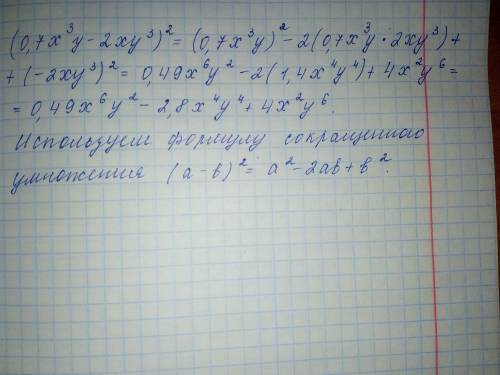 (0,7x³y - 2xy³)² = (0,7x³y)² - 2(0,7x³y · 2xy³) +
+ (-2xy³)² = 0,49x⁶y² - 2(1,4x⁴y⁴) + 4x²y⁶ =
= 0,49x⁶y² - 2,8x⁴y⁴ + 4x²y⁶.
Используем формулу сокращенного
умножения (а - в)² = а² - 2ав + в².